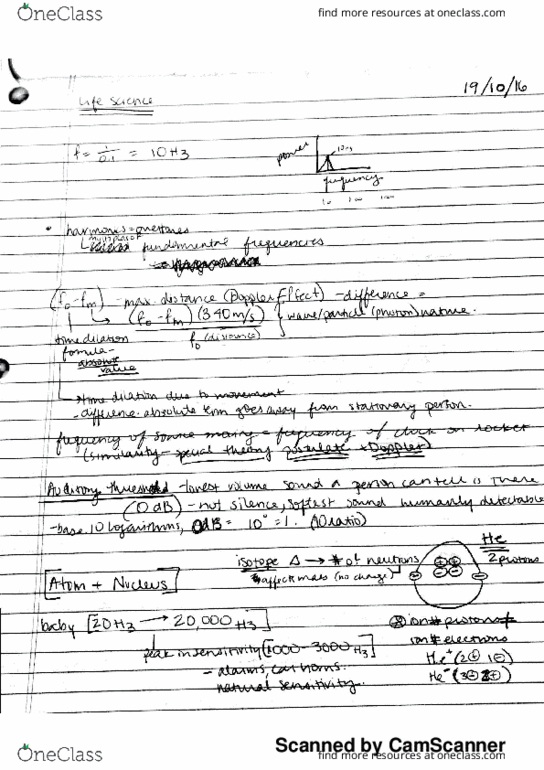 OneClass
find more resources at oneclass.com
19/10/16
Life Science
f = 1/0.1 = 10Hz
power
10Hz
frequency
harmonis = overtones
multiples of
fundemental frequencies
(fo - fm) - max distance (Doppler Effect) - difference =
(fo - fm)(340m/s)
fo (distance)
wave/particle (photon) nature.
time dilation
formula -
absolute
value
time dilation due to movement
- difference absolute term goes away from stationary person.
frequency of source moving = frequency of click on rocket
(similarity - special theory postulate + Doppler)
Auditory threshold - lowest volume sound a person can tell is there
(0dB) - not silence, softest sound humanly detectable
- base 10 logarithms, 0dB = 10⁰ = 1. (10 ratio)
isotope Δ → # of neutrons
affect mass (no charge)
He
2 protons
Atom + Nucleus
baby [20Hz → 20,000Hz]
ion # protons ≠
ion # electrons
peak in sensitivity [1000 - 3000Hz]
He⁺ (2⊕ 1⊖)
- alarms, car horns.
He⁻
natural sensitivity.
Scanned by CamScanner
OneClass
find more resources at oneclass.com